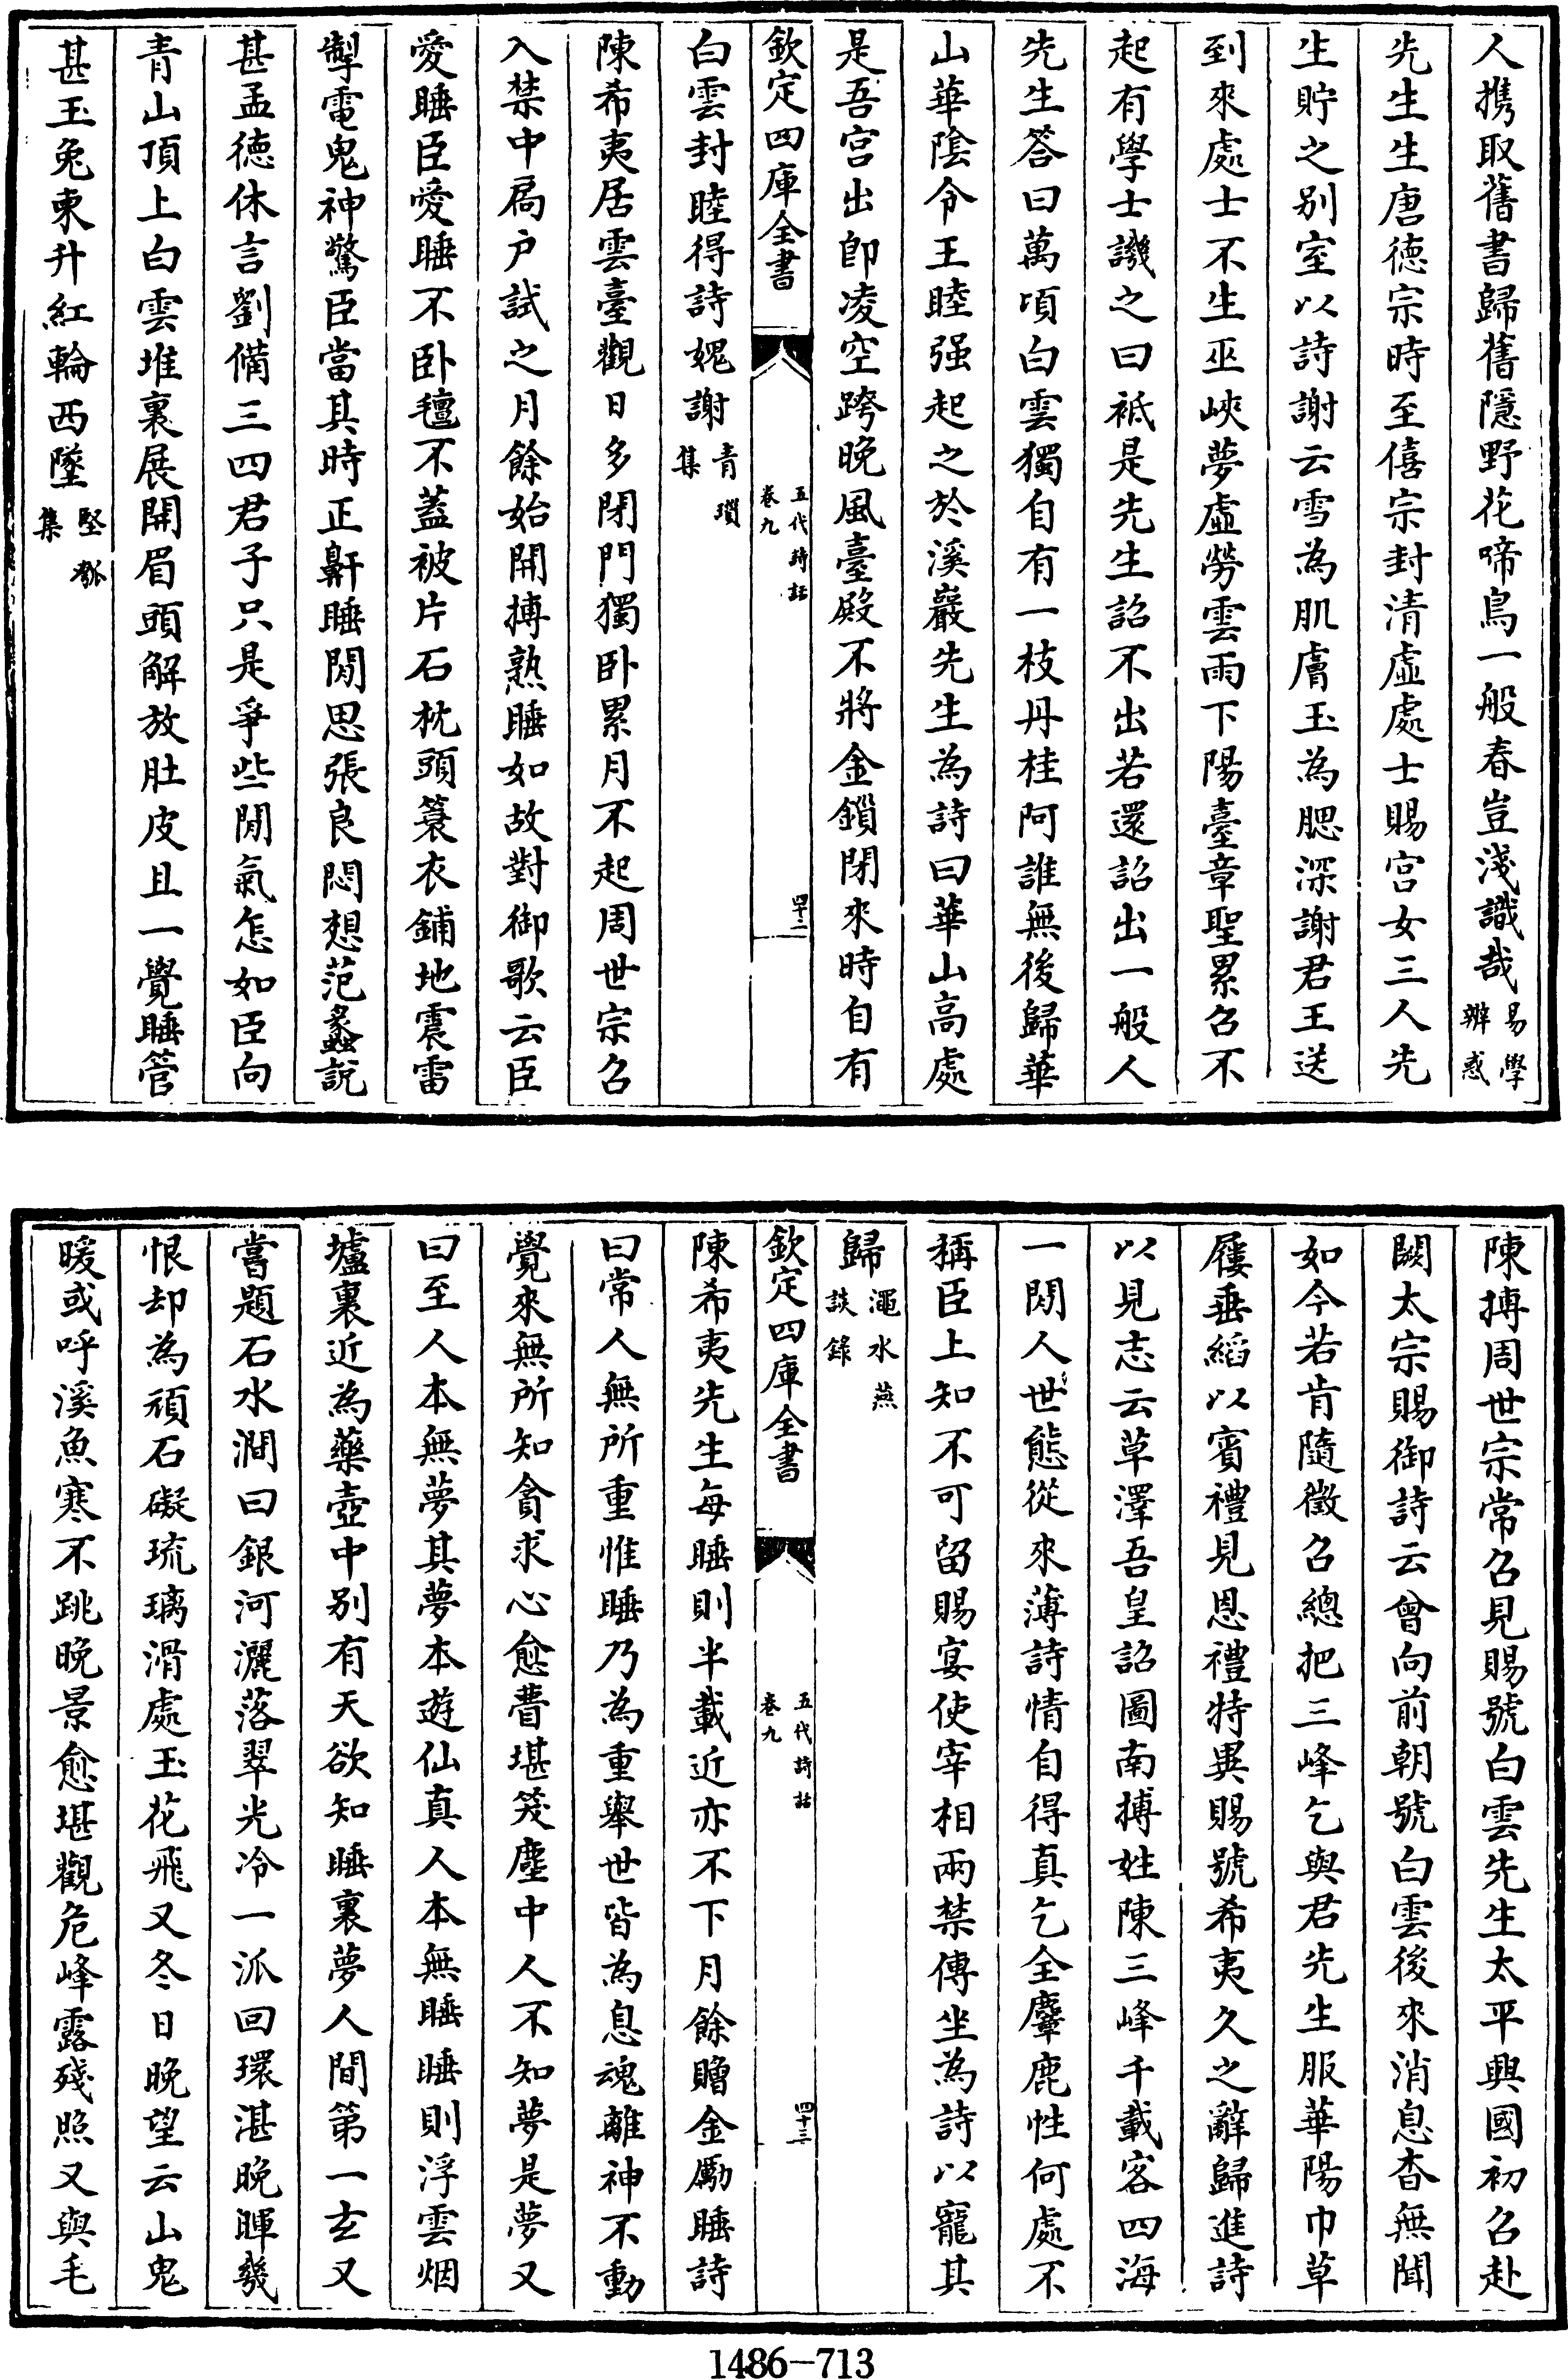 人携取舊書歸舊隱野花啼鳥一般春豈淺識哉易學辨惑
先生生唐德宗時至僖宗封清虛處士賜宫女三人先
生貯之别室以詩謝云雪為肌膚玉為腮深謝君王送
到來處士不生巫峽夢虛勞雲雨下陽臺章聖累召不
起有學士譏之曰袛是先生詔不出若還詔出一般人
先生答曰萬頃白雲獨自有一枝丹桂阿誰無後歸華
山華陰令王睦强起之於溪巖先生為詩曰華山高處
是吾宫出即凌空跨晚風臺殿不將金鎖閉來時自有
欽定四庫全書
五代詩話
卷九
四十二
白雲封睦得詩媿謝青瑣集
陳希夷居雲臺觀日多閉門獨卧累月不起周世宗召
入禁中扃户試之月餘始開摶熟睡如故對御歌云臣
愛睡臣愛睡不卧氊不蓋被片石枕頭蓑衣鋪地震雷
掣電鬼神驚臣當其時正鼾睡閒思張良悶想范蠡説
甚孟德休言劉備三四君子只是爭些閒氣怎如臣向
青山頂上白雲堆裏展開眉頭解放肚皮且一覺睡管
甚玉兔東升紅輪西墜堅瓠集
陳摶周世宗常召見賜號白雲先生太平興國初召赴
闕太宗賜御詩云曾向前朝號白雲後來消息杳無聞
如今若肯隨徵召總把三峰乞與君先生服華陽巾草
屨垂縚以賓禮見恩禮特異賜號希夷久之辭歸進詩
以見志云草澤吾皇詔圖南摶姓陳三峰千載客四海
一閒人世態從來薄詩情自得真乞全麞鹿性何處不
稱臣上知不可留賜宴使宰相兩禁傳坐為詩以寵其
歸澠水燕談録
欽定四庫全書
五代詩話
卷九
四十三
陳希夷先生每睡則半載近亦不下月餘贈金勵睡詩
曰常人無所重惟睡乃為重舉世皆為息魂離神不動
覺來無所知貪求心愈瞢堪笑塵中人不知夢是夢又
曰至人本無夢其夢本遊仙真人本無睡睡則浮雲烟
壚裏近為藥壺中别有天欲知睡裏夢人間第一玄又
嘗題石水澗曰銀河灑落翠光冷一派回環湛晚暉幾
恨却為頑石礙琉璃滑處玉花飛又冬日晚望云山鬼
暖或呼溪魚寒不跳晚景愈堪觀危峰露殘照又與毛
1486-713